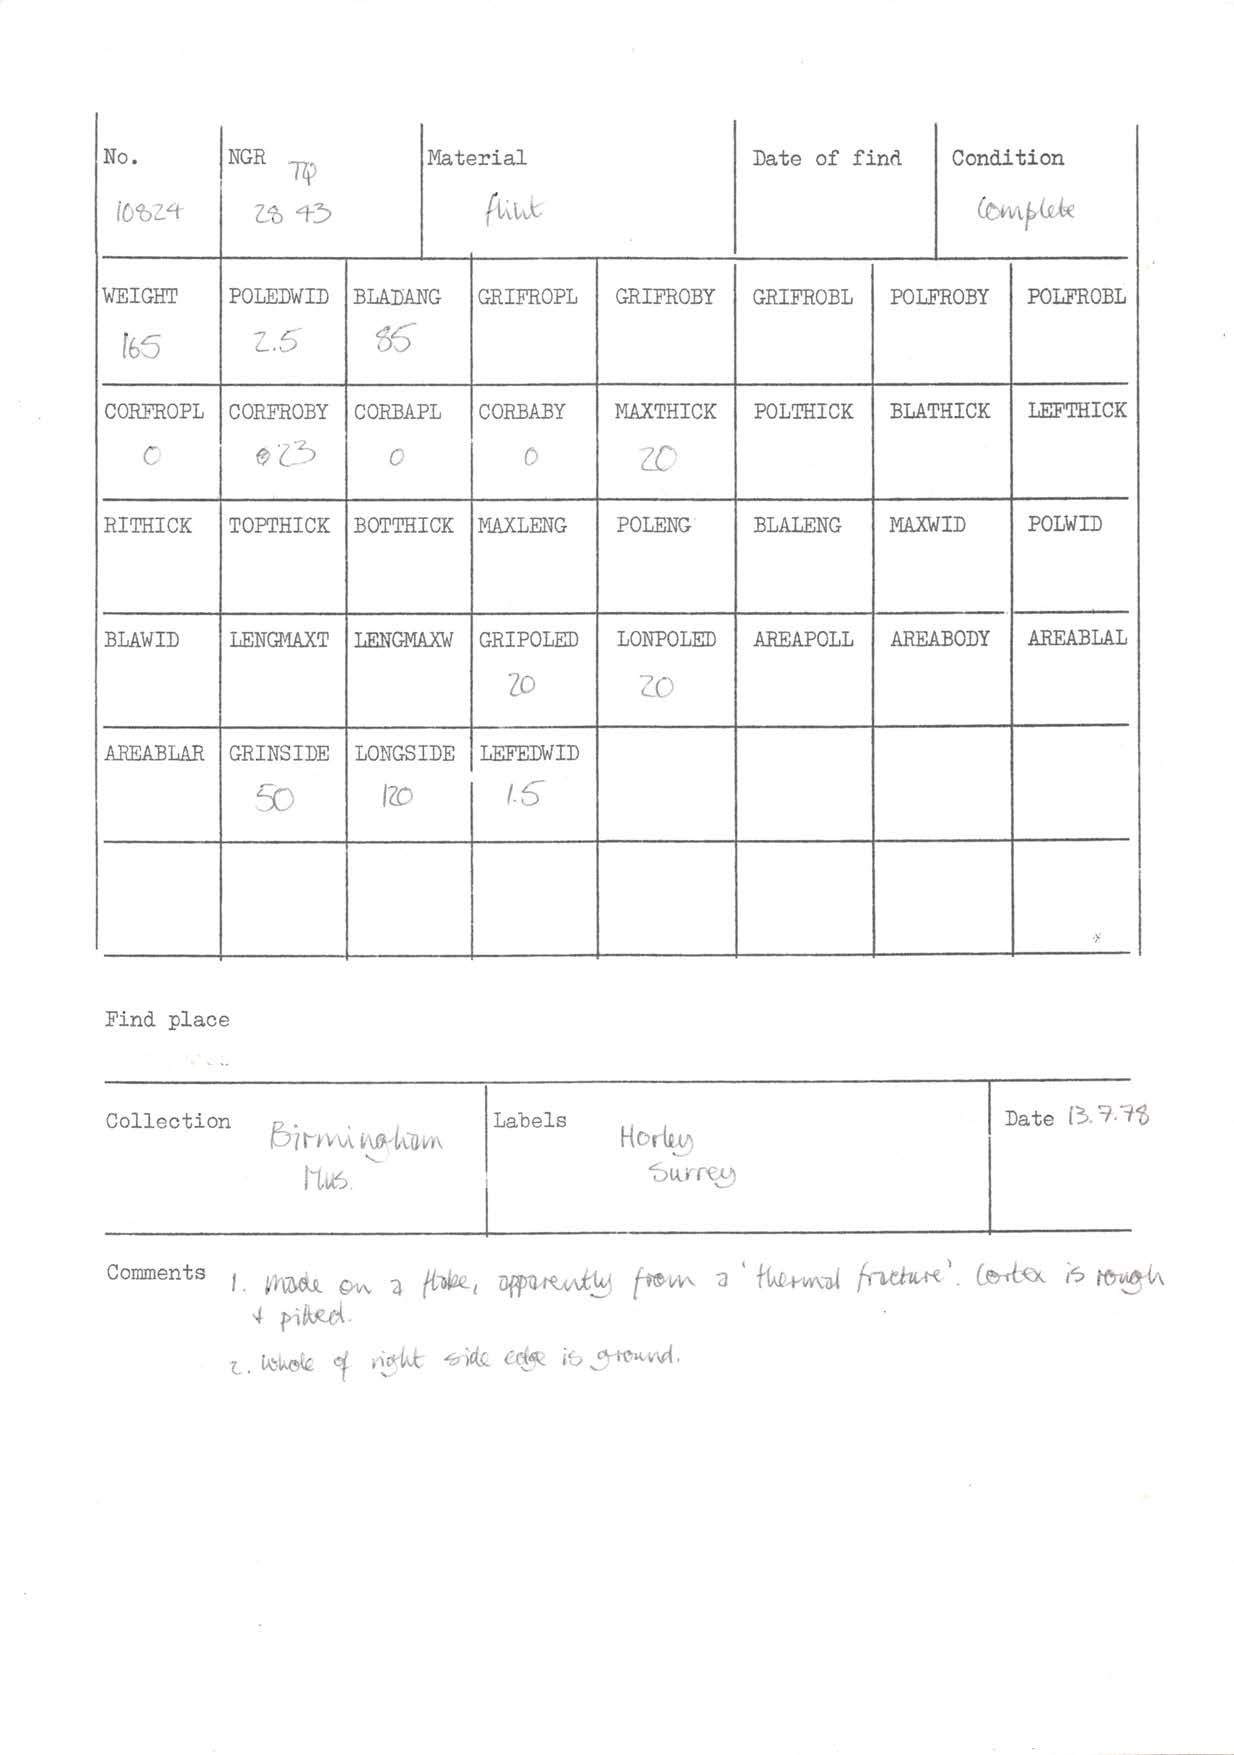 No. NGR TQ Material Date of find Condition
10824 28 43 flint Complete
WEIGHT POLEDWID BLADANG GRIFROPL GRIFROBY GRIFROBL POLFROBY POLFROBL
165 2.5 85
CORFROPL CORFROBY CORBAPL CORBABY MAXTHICK POLTHICK BLATHICK LEFTHICK
0 23 0 0 20
RITHICK TOPTHICK BOTTHICK MAXLENG POLENG BLALENG MAXWID POLWID
BLAWID LENGMAXT LENGMAXW GRIPOLED LONPOLED AREAPOLL AREABODY AREABLAL
20 20
AREABLAR GRINSIDE LONGSIDE LEFEDWID
50 120 1.5
Find place
Collection Birmingham Labels Horley Date 13.7.78
Mus. Surrey
Comments 1. Made on a flake, apparently from a 'thermal fracture'. Cortex is rough
+ pitted.
2. Whole of right side edge is ground.